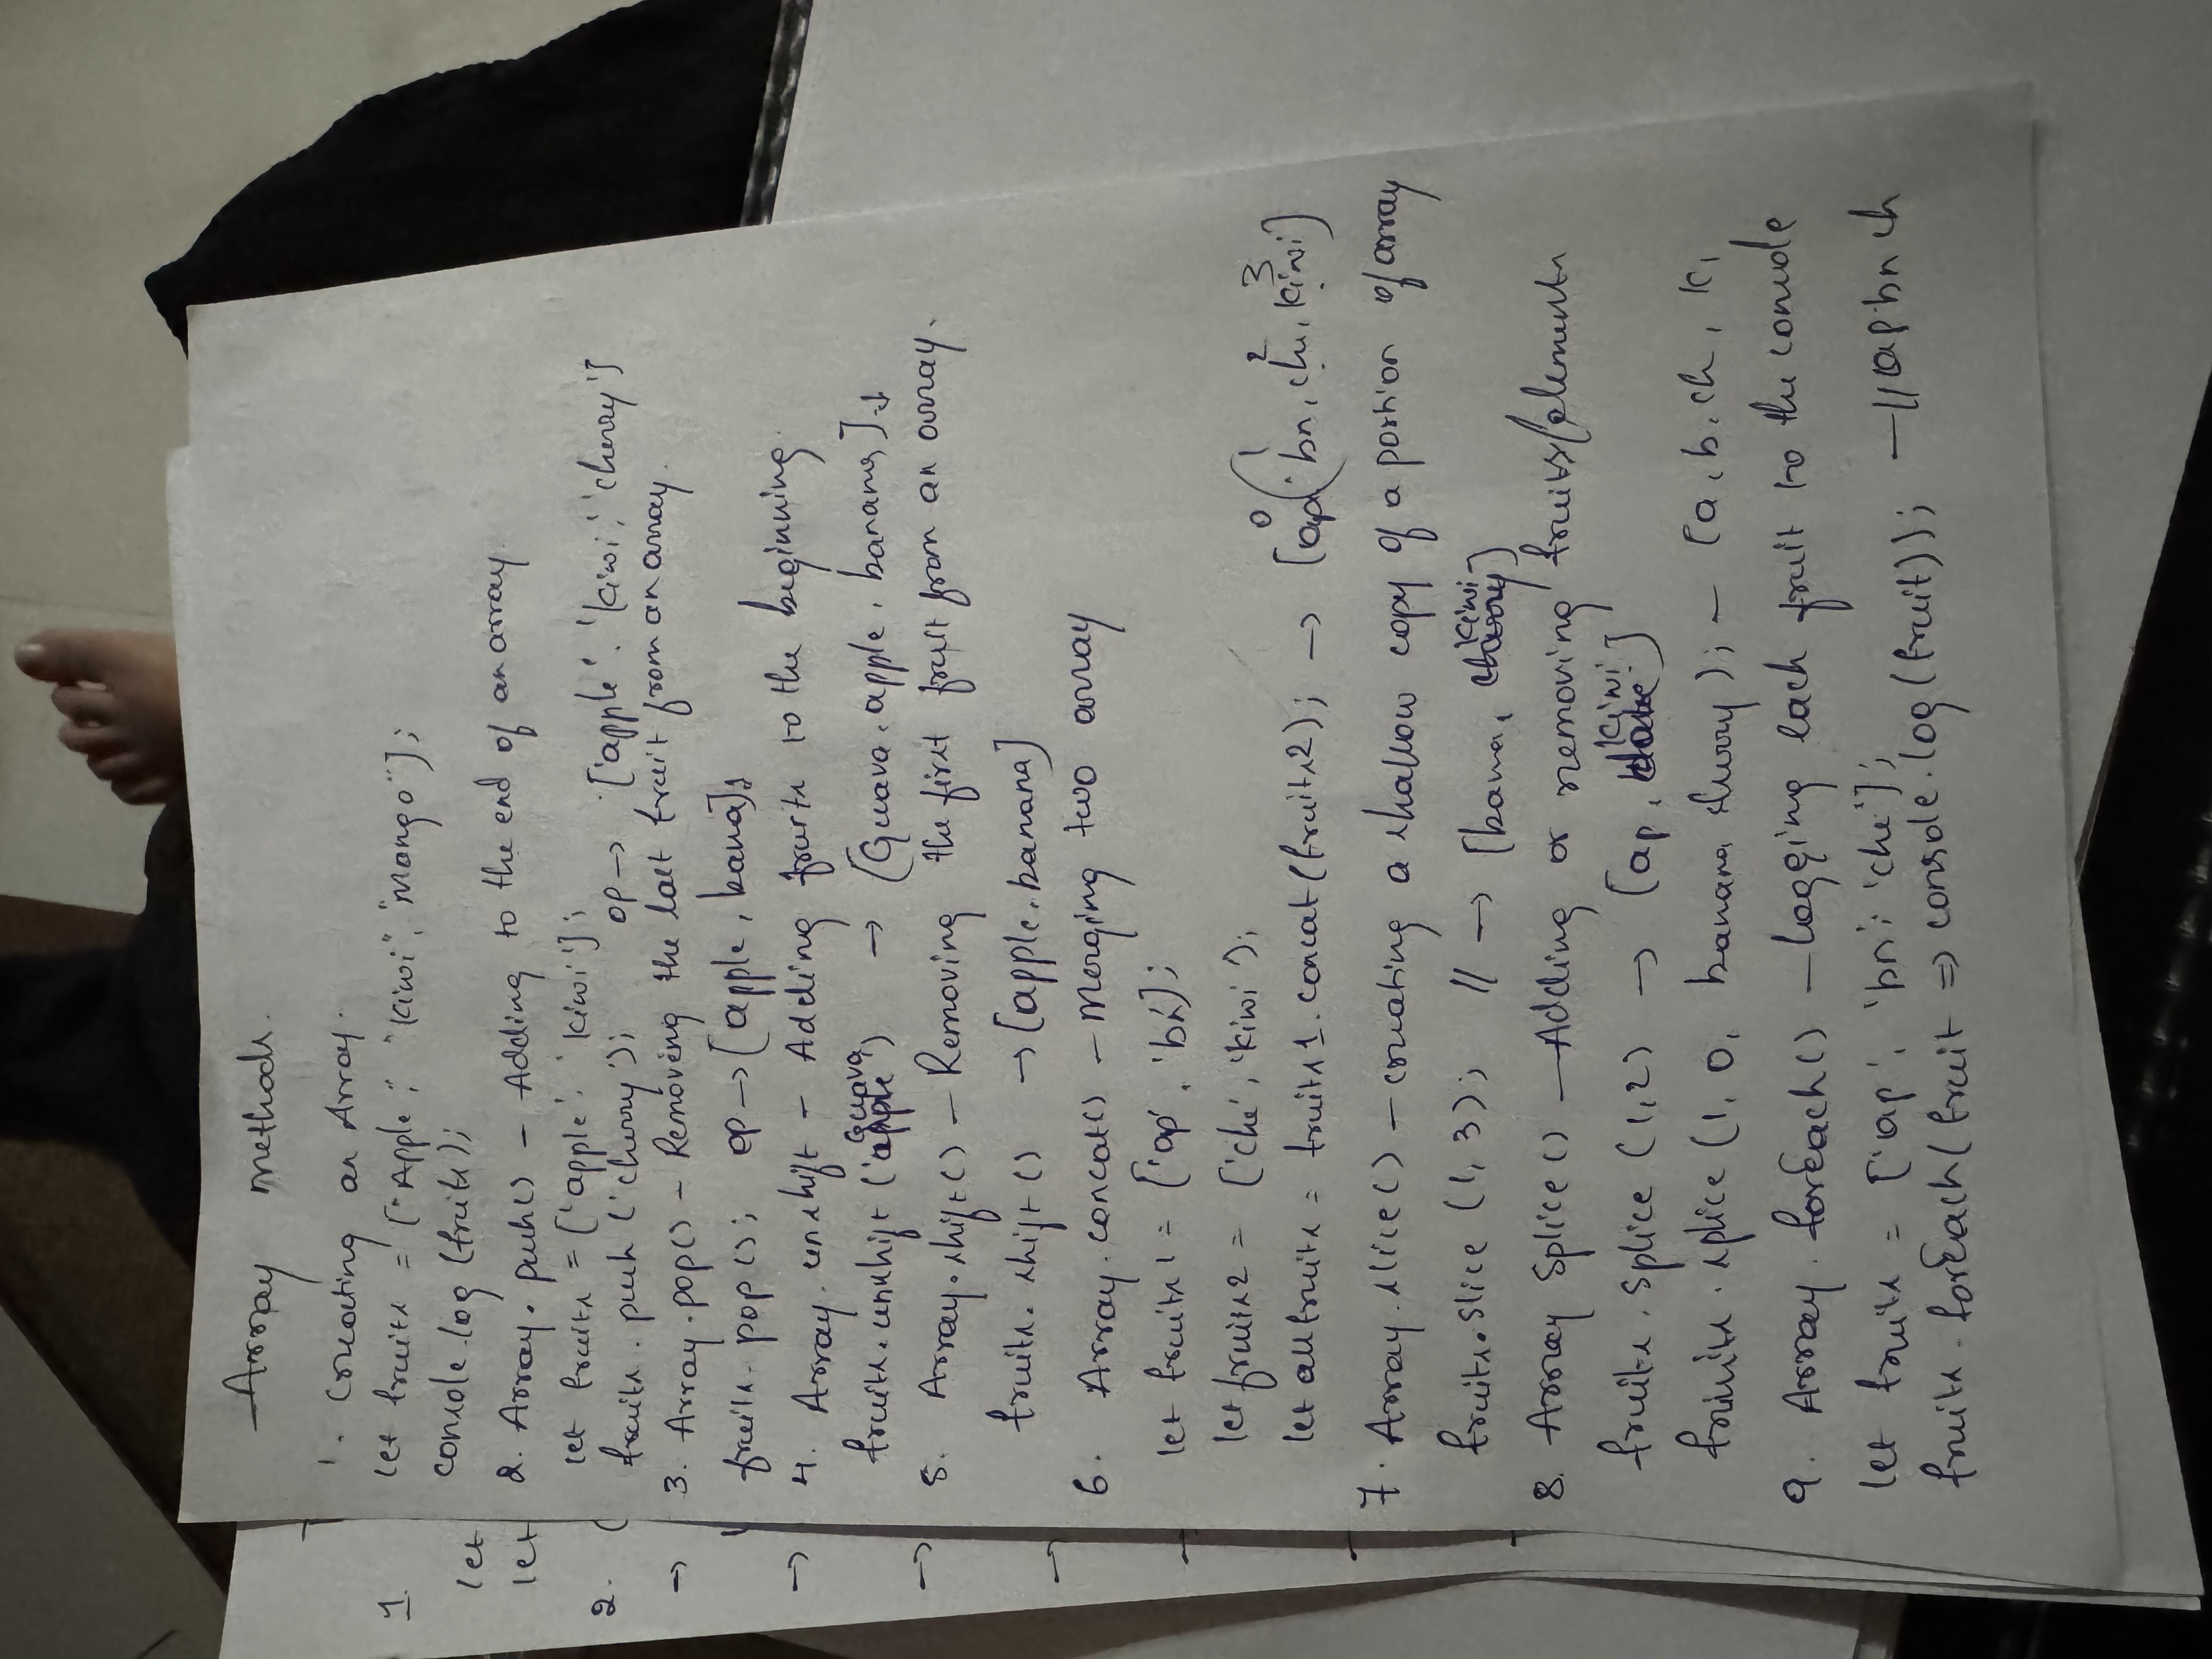 Array methods.
1. Creating an Array.
let fruits = ["Apple", "Kiwi", "Mango"];
console.log (fruits);
2. Array. push() – Adding to the end of an array.
let fruits = ['apple', 'kiwi'];
fruits. push ('cherry'); op → ['apple', 'kiwi', 'cherry']
3. Array.pop() – Removing the last fruit from an array.
fruits. pop (); op → [apple, bana];
4. Array. unshift – Adding fruits to the beginning.
fruits.unshift ('Guava') → [Guava, apple, banana]
5. Array.shift() – Removing the first fruit from an array.
fruits. shift () → [apple, banana]
6. Array. concat() – Merging two array
let fruits1 = ['ap', 'bn'];
let fruits2 = ['che', 'kiwi'];
0 1 2 3
let allfruits = fruits1.concat(fruits2); → [ap, bn, che, kiwi]
7. Array.slice() – creating a shallow copy of a portion of array
fruits.slice (1, 3); // → [bana, kiwi]
8. Array Splice () – Adding or removing fruits/elements
fruits. splice (1,2) → [ap, kiwi]
fruits. splice (1, 0, banana cherry); – [a, b, ch, k,
9. Array. forEach() – logging each fruit to the console
let fruits = ['ap', 'bn', 'che'];
fruits. forEach(fruit => console.log(fruit)); – // ap bn ch
1.
let
let
2. (